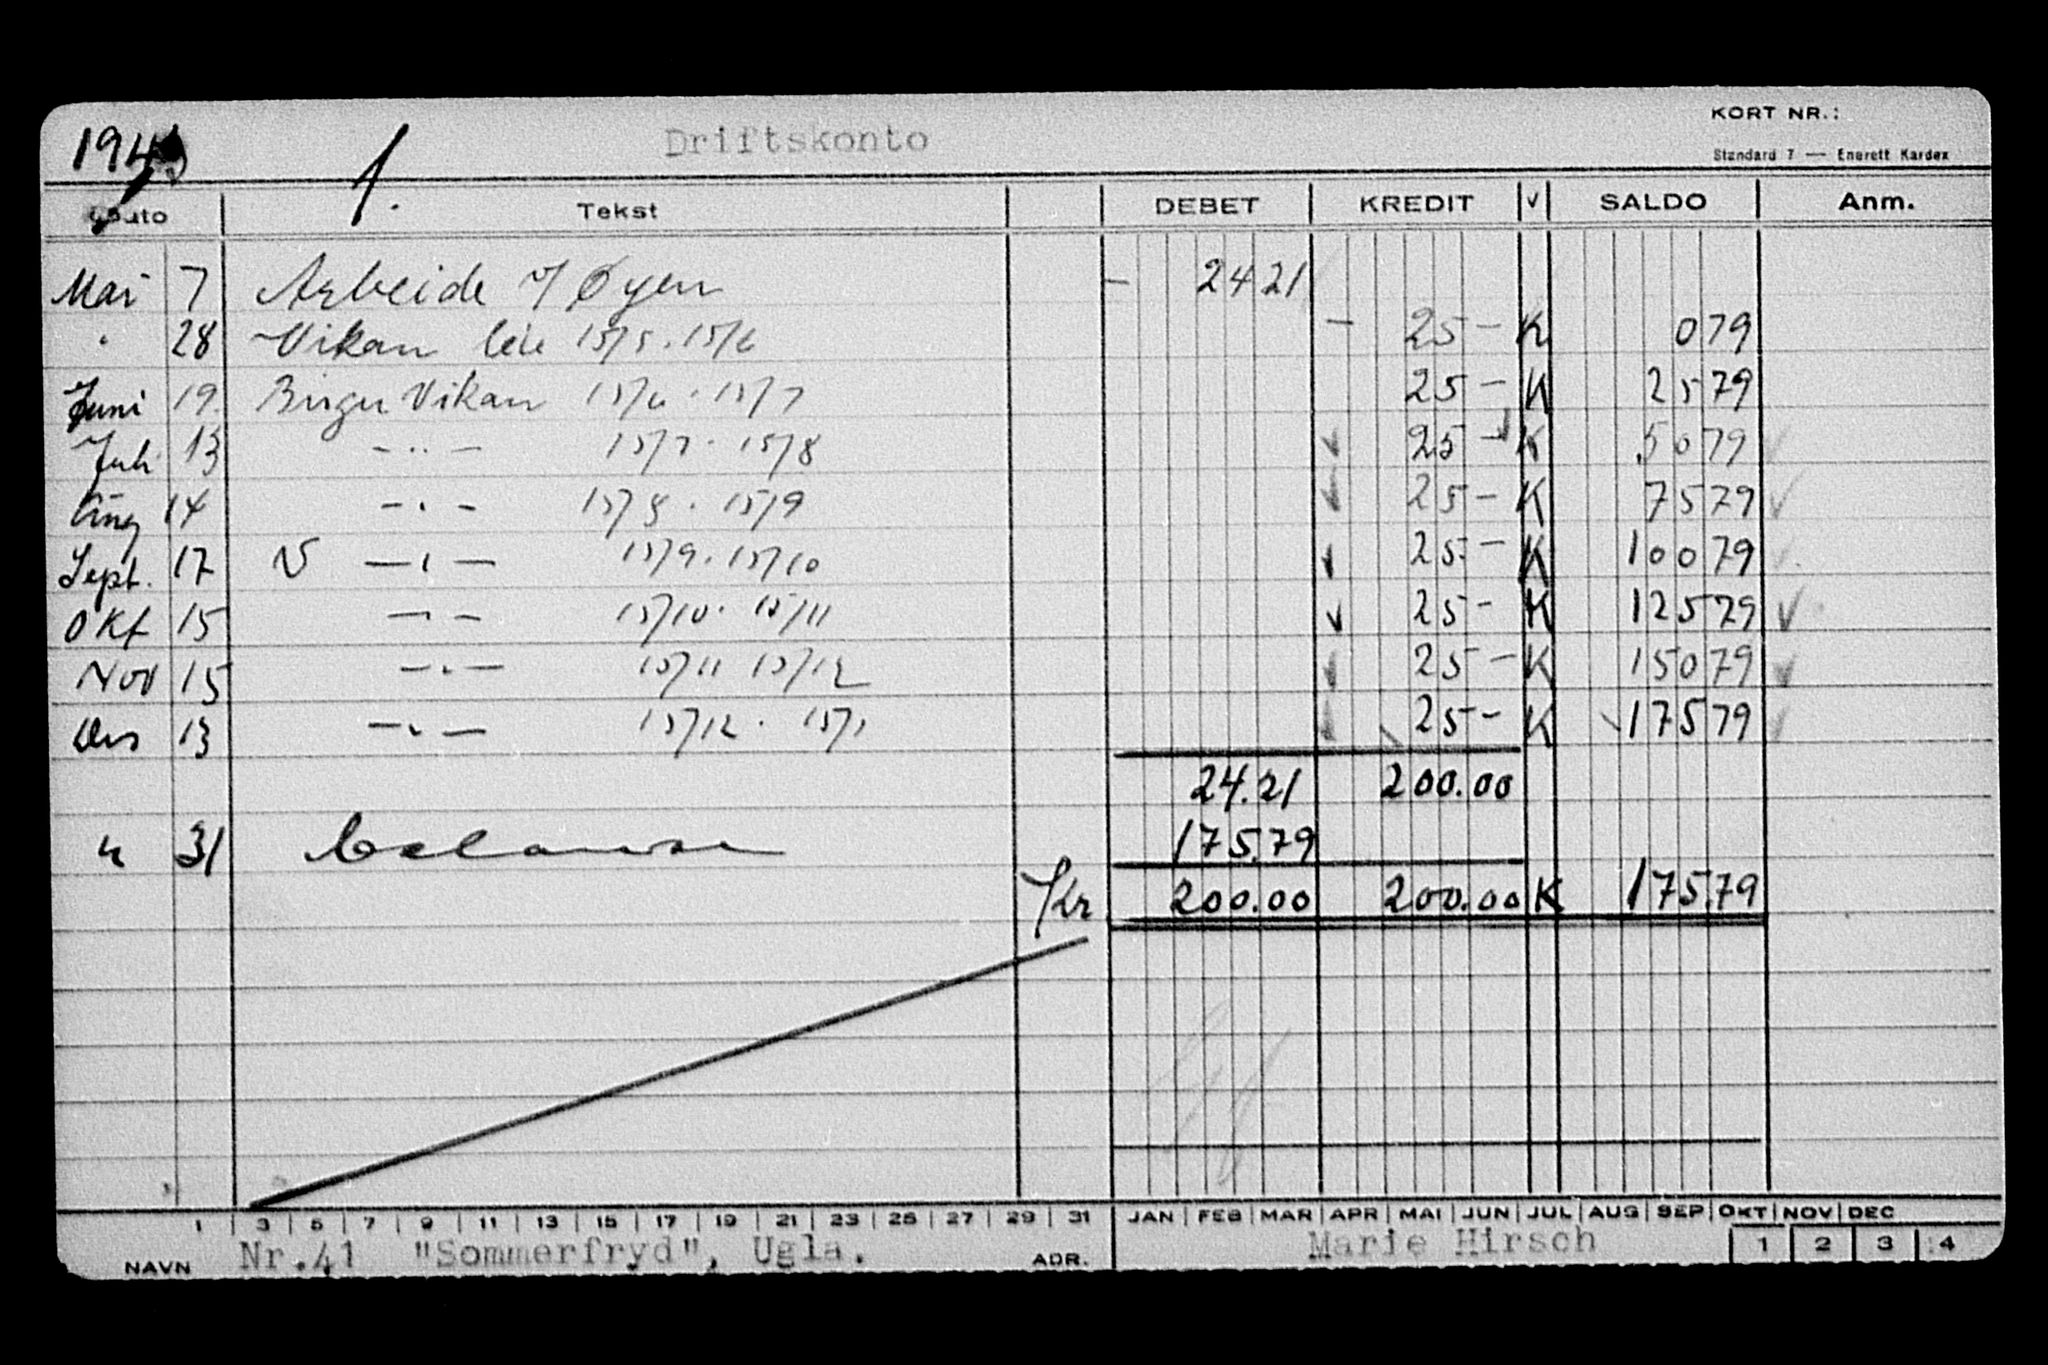 KORT NR.:
194
1.
Driftskonto
Standard 7 — Enerett Kardex
Dato Tekst DEBET KREDIT √ SALDO Anm.
Mai 7 Arbeide v/ Øyen - 24 21
" 28 Vikan leie 15/5 - 15/6 - 25 - K 0 79
Juni 19. Birger Vikan 15/6 - 15/7 25 - K 25 79
Juli 13 - " - 15/7 - 15/8 25 - K 50 79
Aug 14 - " - 15/8 - 15/9 25 - K 75 79
Sept. 17 - " - 15/9 - 15/10 25 - K 100 79
Okt 15 - " - 15/10 - 15/11 25 - K 125 79
Nov 15 - " - 15/11 15/12 25 - K 150 79
Des 13 - " - 15/12 - 15/1 25 - K 175 79
24.21 200.00
" 31 balanse 175.79
Kr 200.00 200.00 K 175.79
1 3 5 7 9 11 13 15 17 19 21 23 25 27 29 31 JAN FEB MAR APR MAI JUN JUL AUG SEP OKT NOV DEC
NAVN Nr.41 "Sommerfryd", Ugla. ADR. Marie Hirsch 1 2 3 4